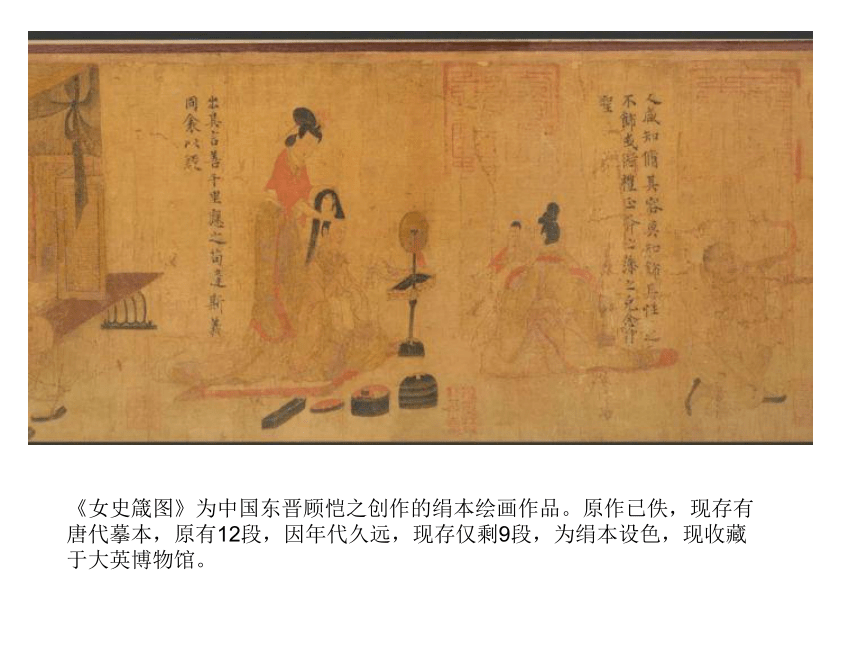 人咸知脩其容莫知飾其性之
不飾或愆禮正斧之藻之克念作
聖
出其言善千里應之苟違斯義
同衾以疑
《女史箴图》为中国东晋顾恺之创作的绢本绘画作品。原作已佚，现存有
唐代摹本，原有12段，因年代久远，现存仅剩9段，为绢本设色，现收藏
于大英博物馆。